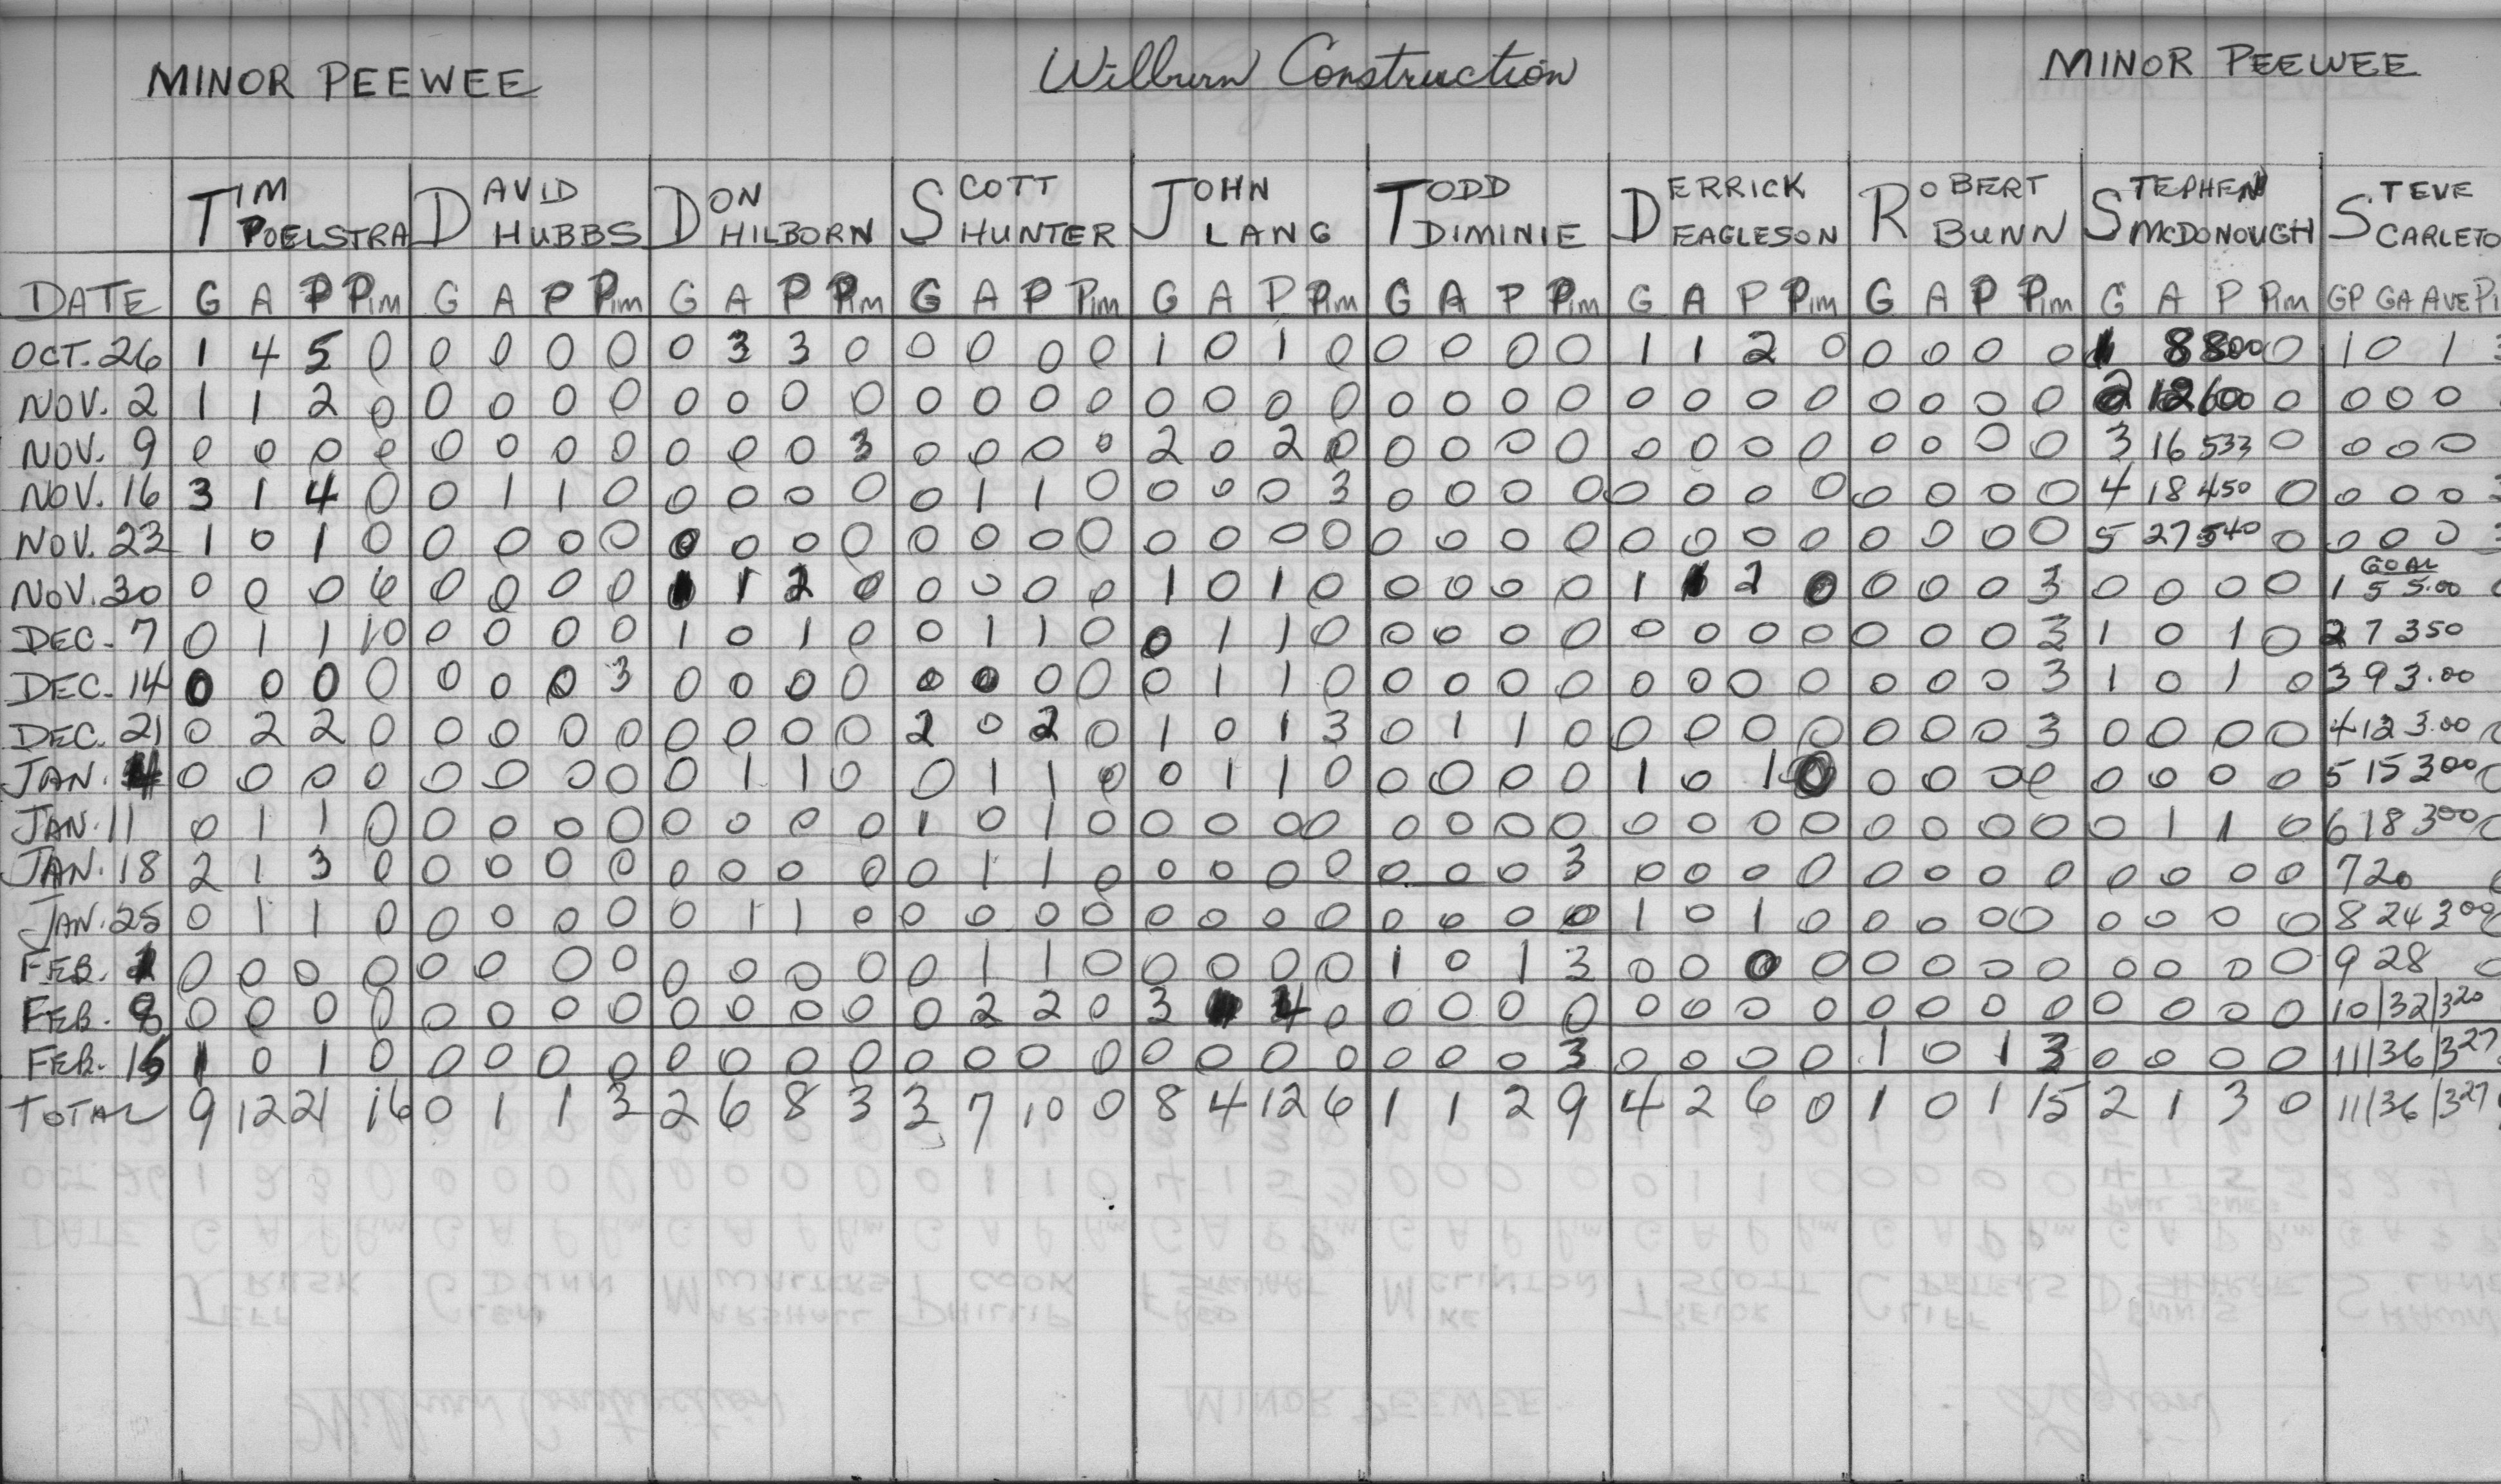 MINOR PEEWEE Wilburn Construction MINOR PEEWEE
TIM POELSTRA DAVID HUBBS DON HILBORN SCOTT HUNTER JOHN LANG TODD DIMINIE DERRICK EAGLESON ROBERT BUNN STEPHEN MCDONOUGH STEVE SCARLETO
DATE G A P Pim G A P Pim G A P Pim G A P Pim G A P Pim G A P Pim G A P Pim G A P Pim G A P Pim GP GA AVE Pi
OCT. 26 1 4 5 0 0 0 0 0 0 3 3 0 0 0 0 0 1 0 1 0 0 0 0 0 1 1 2 0 0 0 0 0 1 8 800 0 1 0 1 3
NOV. 2 1 1 2 0 0 0 0 0 0 0 0 0 0 0 0 0 0 0 0 0 0 0 0 0 0 0 0 0 0 0 0 0 2 12 600 0 0 0 0
NOV. 9 0 0 0 0 0 0 0 0 0 0 0 3 0 0 0 0 2 0 2 0 0 0 0 0 0 0 0 0 0 0 0 0 3 16 533 0 0 0 0
NOV. 16 3 1 4 0 0 1 1 0 0 0 0 0 0 1 1 0 0 0 0 3 0 0 0 0 0 0 0 0 0 0 0 0 4 18 450 0 0 0 0 3
NOV. 23 1 0 1 0 0 0 0 0 0 0 0 0 0 0 0 0 0 0 0 0 0 0 0 0 0 0 0 0 0 0 0 0 5 27 540 0 0 0 0 3
GOAL
NOV. 30 0 0 0 6 0 0 0 0 1 1 2 0 0 0 0 0 1 0 1 0 0 0 0 0 1 1 2 0 0 0 0 3 0 0 0 0 1 5 5.00 0
DEC. 7 0 1 1 10 0 0 0 0 1 0 1 0 0 1 1 0 0 1 1 0 0 0 0 0 0 0 0 0 0 0 0 3 1 0 1 0 2 7 350
DEC. 14 0 0 0 0 0 0 0 3 0 0 0 0 0 0 0 0 0 1 1 0 0 0 0 0 0 0 0 0 0 0 0 3 1 0 1 0 3 9 3.00
DEC. 21 0 2 2 0 0 0 0 0 0 0 0 0 2 0 2 0 1 0 1 3 0 1 1 0 0 0 0 0 0 0 0 3 0 0 0 0 4 12 3.00 0
JAN. 4 0 0 0 0 0 0 0 0 0 1 1 0 0 1 1 0 0 1 1 0 0 0 0 0 1 0 1 0 0 0 0 0 0 0 0 0 5 15 300 0
JAN. 11 0 1 1 0 0 0 0 0 0 0 0 0 1 0 1 0 0 0 0 0 0 0 0 0 0 0 0 0 0 0 0 0 0 1 1 0 6 18 300 0
JAN. 18 2 1 3 0 0 0 0 0 0 0 0 0 0 1 1 0 0 0 0 0 0 0 0 3 0 0 0 0 0 0 0 0 0 0 0 0 7 20 0
JAN. 25 0 1 1 0 0 0 0 0 0 1 1 0 0 0 0 0 0 0 0 0 0 0 0 0 1 0 1 0 0 0 0 0 0 0 0 0 8 24 300 0
FEB. 1 0 0 0 0 0 0 0 0 0 0 0 0 0 1 1 0 0 0 0 0 1 0 1 3 0 0 0 0 0 0 0 0 0 0 0 0 9 28 0
FEB. 8 0 0 0 0 0 0 0 0 0 0 0 0 0 2 2 0 3 4 0 0 0 0 0 0 0 0 0 0 0 0 0 0 0 0 0 10/32/320
FEB. 15 1 0 1 0 0 0 0 0 0 0 0 0 0 0 0 0 0 0 0 0 0 0 0 3 0 0 0 0 1 0 1 3 0 0 0 0 11/36/327
TOTAL 9 12 21 16 0 1 1 3 2 6 8 3 3 7 10 0 8 4 12 6 1 1 2 9 4 2 6 0 1 0 1 15 2 1 3 0 11/36/327